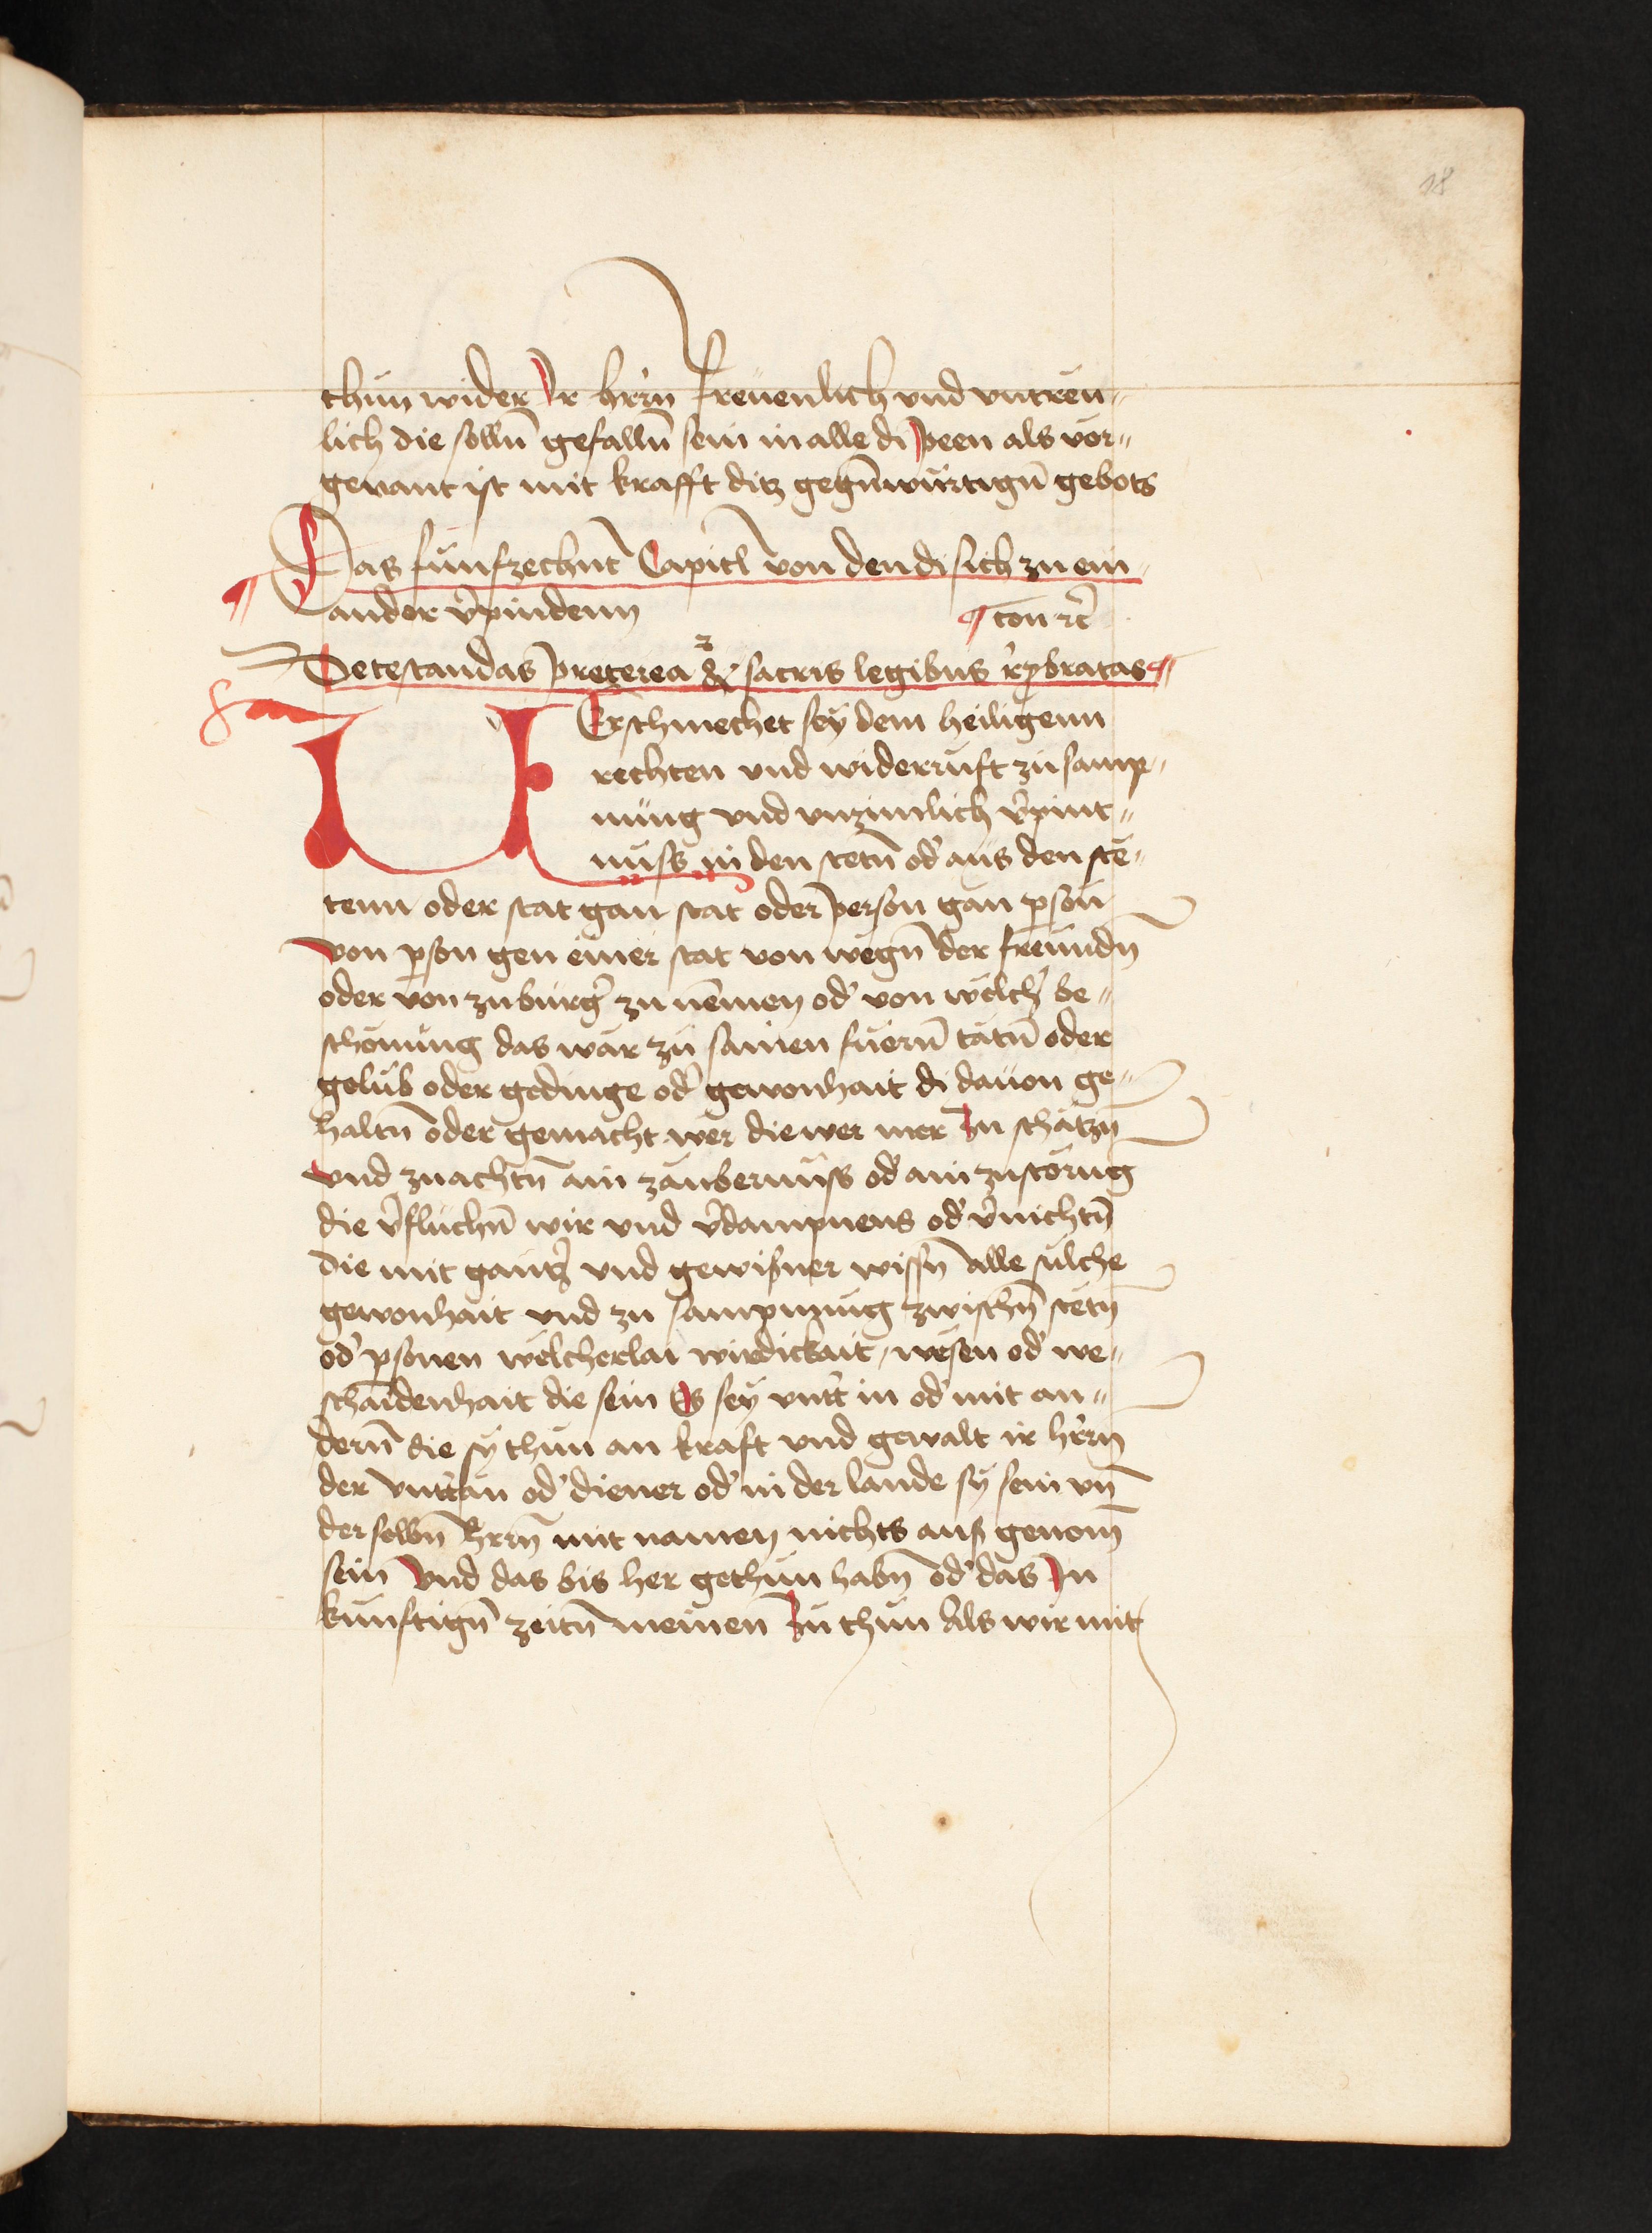 18
thun wider Ir hr̄rn freuenlich vnd vntreu„
lich die solln̄ gefalln̄ sein in alle di peen als vor„
genant ist mit krafft ditz gegn̄wurtign̄ gebots
Das funfzechnt Capitl von den di sich zu ein„
ander v̄pindenn ¶ con ꝛc̄
Detestandas preterea & sacris legibus rꝓbratas
VErschmechet sey dem heiligenn
rechten vnd widerruft zu samp„
nung vnd vnzimlich v̄pint„
nuss in den stetn̄ od̄ aus den ste„
tenn oder stat gan stat oder person gan ꝑson
von ꝑson gen einer stat von wegn̄ der freundn̄
oder von zu burḡ zu nemen od̄ von welch̄ be„
schonung das war zu samen fuern̄ tatn̄ oder
gelub oder gedinge od̄ gewonhait di dauon ge„
haltn̄ oder gemacht wer die wer mer zu schatzn̄
vnd zu achtn̄ ain zaubernuss od̄ ain zustorung
die v̄fluchn̄ wir vnd v̄dampnens od̄ v̄nichtn̄
die mit gantz̄ vnd gewisner wissn̄ alle sulche
gewonhait vnd zu sampnung zwischn̄ stetn̄
od̄ ꝑsonen welcherlai wirdickait, wesen od̄ we„
schaidenhait die sein Es sey vntt̄ in od̄ mit an„
dern̄ die sy thun an kraft vnd gewalt ir hr̄rn
der vntt̄an od̄ diener od̄ in der lande sy sein vn̄
der selbn̄ hrrn̄ mit namen nichts aus genom̄
sein vnd das bis her gethun habn̄ od̄ das In
kunftign̄ zeitn̄ meinen zu thun Als wir mit